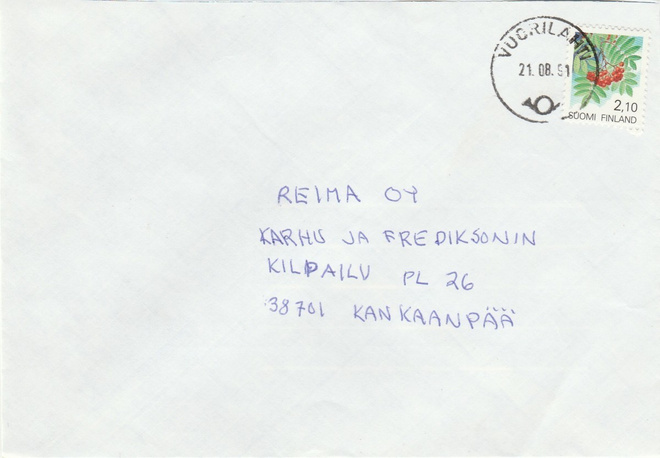 VUORILAHTI
21.08.91
2,10
SUOMI FINLAND
REIMA OY
KARHU JA FREDIKSONIN
KILPAILU PL 26
38701 KANKAANPÄÄ